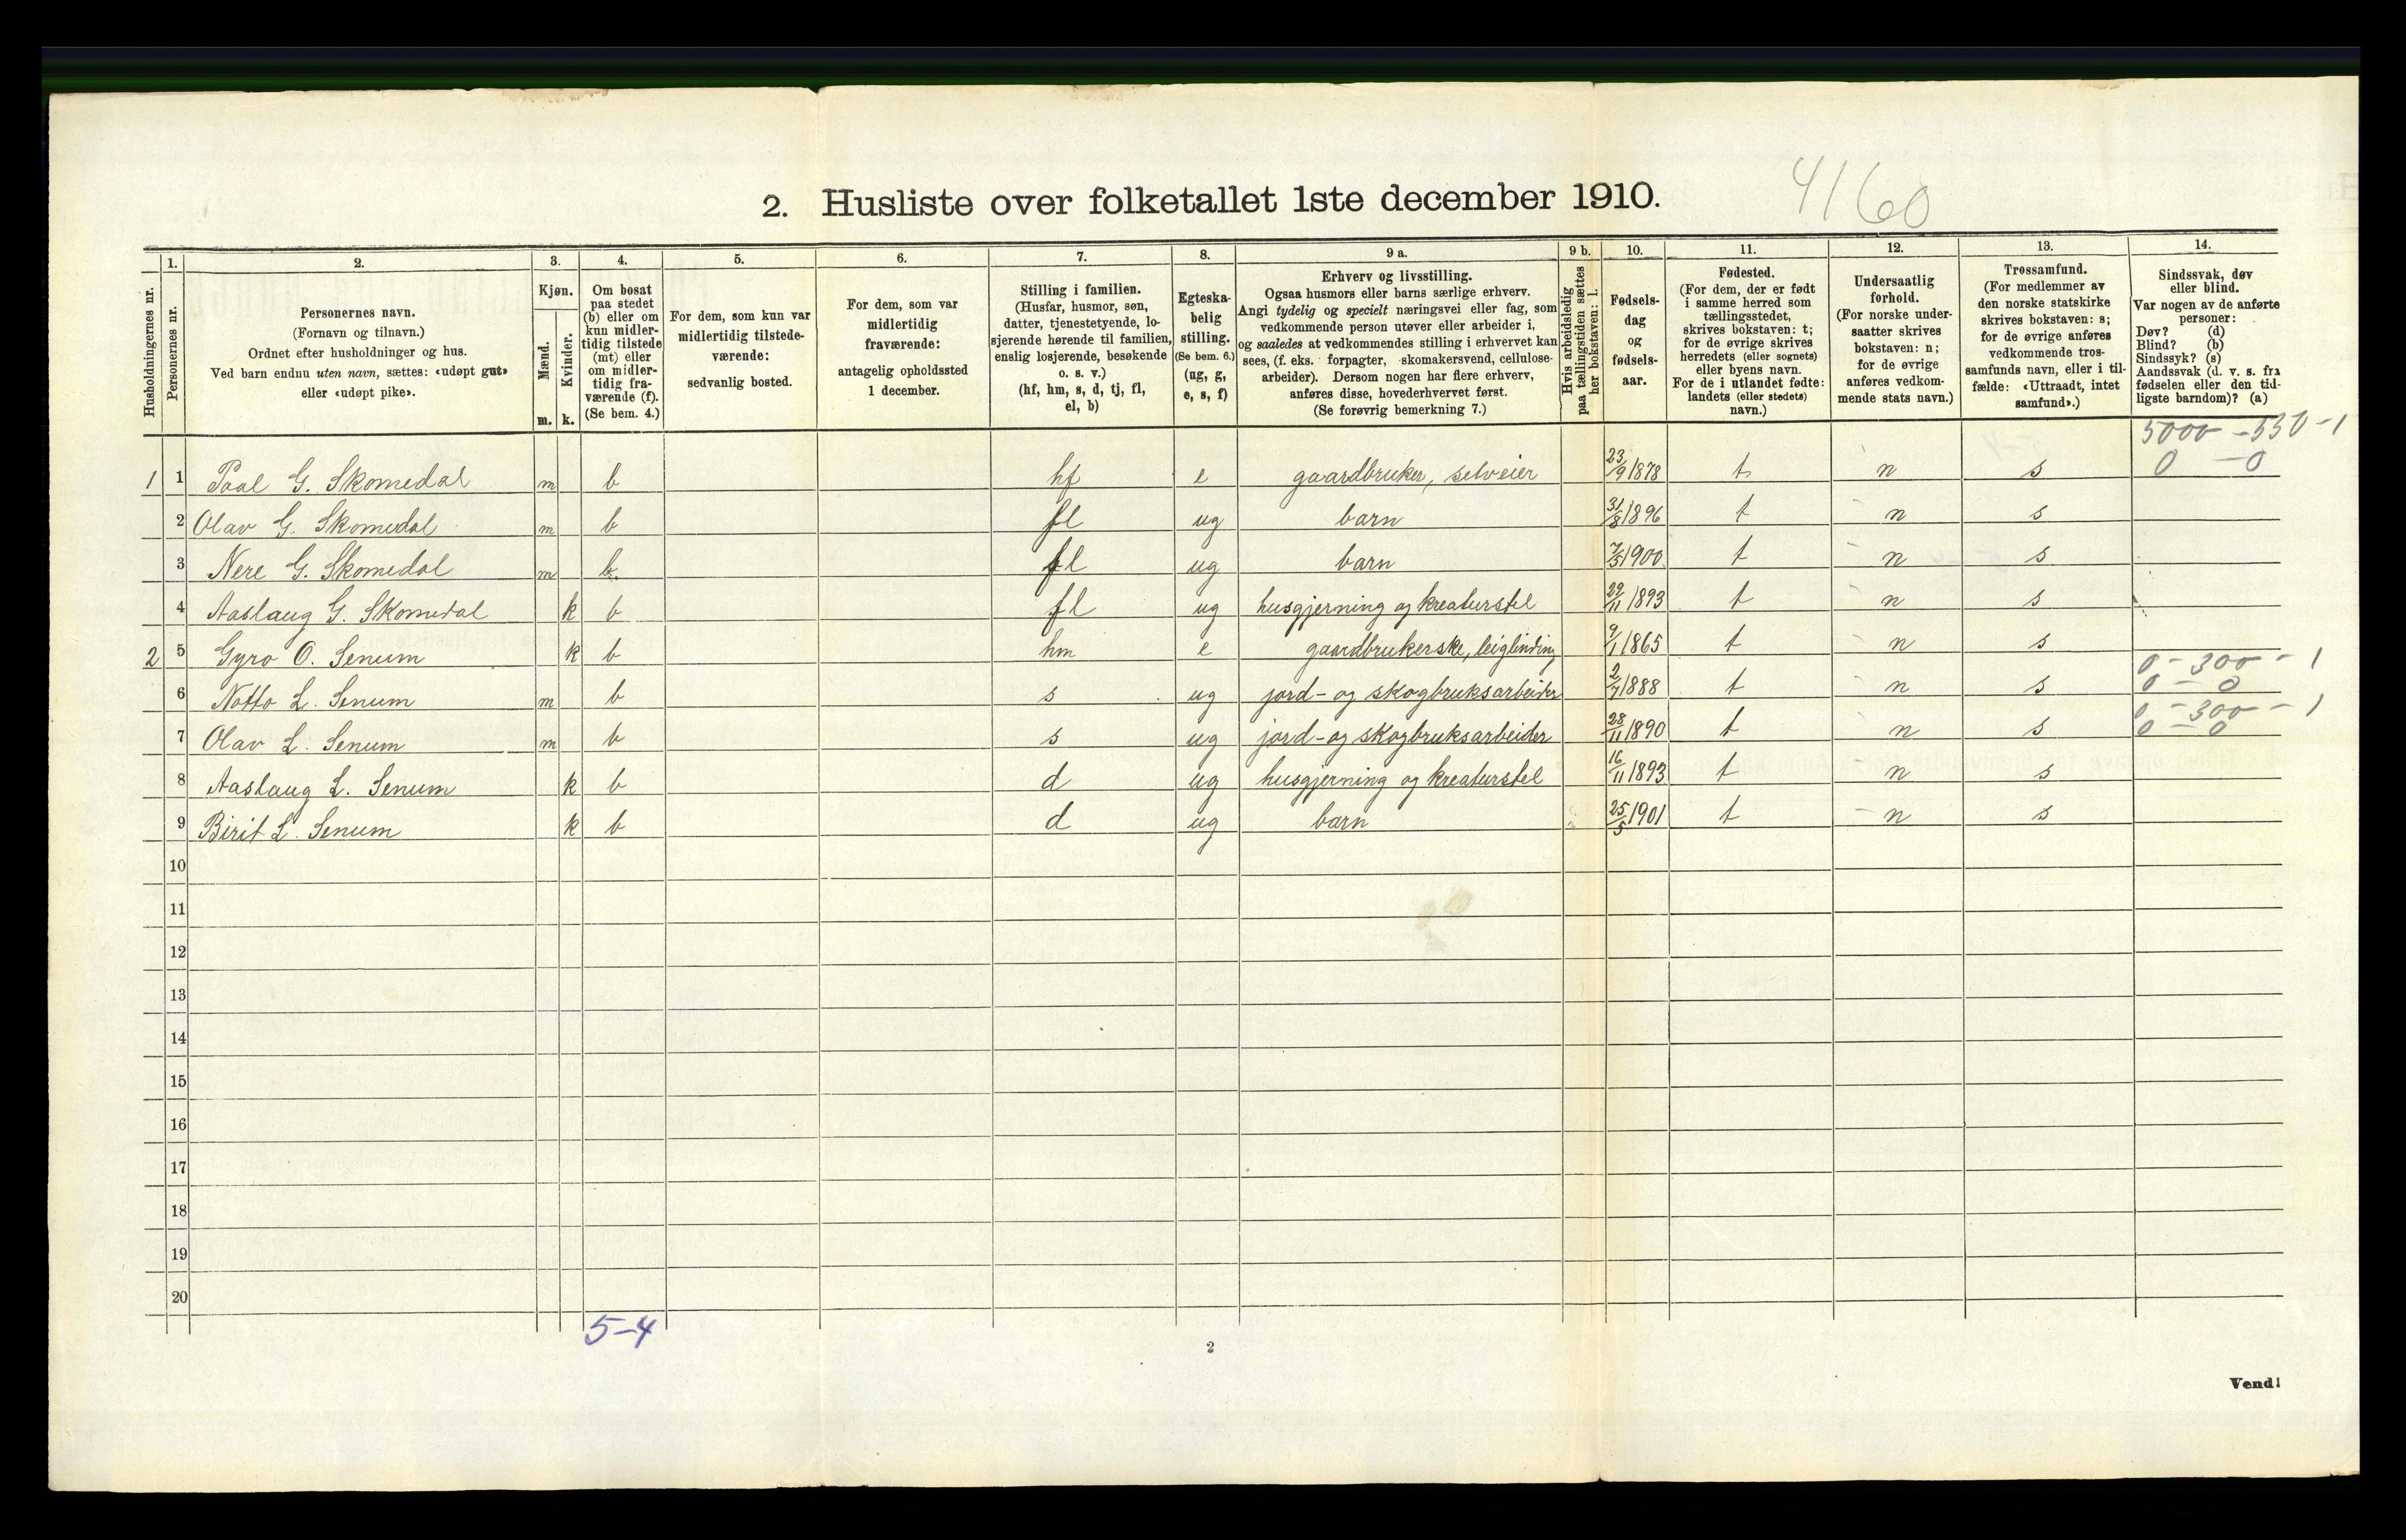 4160
2. Husliste over folketallet 1ste december 1910.
Husholdningernes nr.
1.
Personernes nr.
2.
Personernes navn.
(Fornavn og tilnavn.)
Ordnet efter husholdninger og hus.
Ved barn endnu uten navn, sættes: «udøpt gut»
eller «udøpt pike».
3.
Kjøn.
Mænd.
Kvinder.
m. k.
4.
Om bosat
paa stedet
(b) eller om
kun midler-
tidig tilstede
(mt) eller
om midler-
tidig fra-
værende (f).
(Se bem. 4.)
5.
For dem, som kun var
midlertidig tilstede-
værende:
sedvanlig bosted.
6.
For dem, som var
midlertidig
fraværende:
antagelig opholdssted
1 december.
7.
Stilling i familien.
(Husfar, husmor, søn,
datter, tjenestetyende, lo-
sjerende hørende til familien,
enslig losjerende, besøkende
o. s. v.)
(hf, hm, s, d, tj, fl,
el, b)
8.
Egteska-
belig
stilling.
(Se bem. 6.)
(ug, g,
e, s, f)
9 a.
Erhverv og livsstilling.
Ogsaa husmors eller barns særlige erhverv.
Angi tydelig og specielt næringsvei eller fag, som
vedkommende person utøver eller arbeider i,
og saaledes at vedkommendes stilling i erhvervet kan
sees, (f. eks. forpagter, skomakersvend, cellulose-
arbeider). Dersom nogen har flere erhverv,
anføres disse, hovederhvervet først.
(Se forøvrig bemerkning 7.)
9 b.
Hvis arbeidsledig
paa tællingstiden sættes
her bokstaven: l.
10.
Fødsels-
dag
og
fødsels-
aar.
11.
Fødested.
(For dem, der er født
i samme herred som
tællingsstedet,
skrives bokstaven: t;
for de øvrige skrives
herredets (eller sognets)
eller byens navn.
For de i utlandet fødte:
landets (eller stedets)
navn.)
12.
Undersaatlig
forhold.
(For norske under-
saatter skrives
bokstaven: n;
for de øvrige
anføres vedkom-
mende stats navn.)
13.
Trossamfund.
(For medlemmer av
den norske statskirke
skrives bokstaven: s;
for de øvrige anføres
vedkommende tros-
samfunds navn, eller i til-
fælde: «Uttraadt, intet
samfund».)
14.
Sindssvak, døv
eller blind.
Var nogen av de anførte
personer:
Døv? (d)
Blind? (b)
Sindssyk? (s)
Aandssvak (d. v. s. fra
fødselen eller den tid-
ligste barndom)? (a)
5000 - 550 - 1
0 - 0
1 1 Paal G. Skomedal m b hf e gaardbruker, selveier 23/9 1878 t n s
2 Olav G. Skomedal m b fl ug barn 31/8 1896 t n s
3 Nere G. Skomedal m b. fl ug barn 7/5 1900 t n s
4 Aaslaug G. Skomedal k b fl ug husgjerning og kreaturstel 22/11 1893 t n s
2 5 Gyro O. Senum k b hm e gaardbrukerske, leiglinding 9/1 1865 t n s
0 - 300 - 1
6 Notto L. Senum m b s ug jord- og skogbruksarbeider 2/7 1888 t n s 0 - 0
0 - 300 - 1
7 Olav L. Senum m b s ug jord- og skogbruksarbeider 28/11 1890 t n s 0 - 0
8 Aaslaug L. Senum k b d ug husgjerning og kreaturstel 16/11 1893 t n s
9 Birit L. Senum k b d ug barn 25/5 1901 t n s
10
11
12
13
14
15
16
17
18
19
20
5-4
2
Vend!